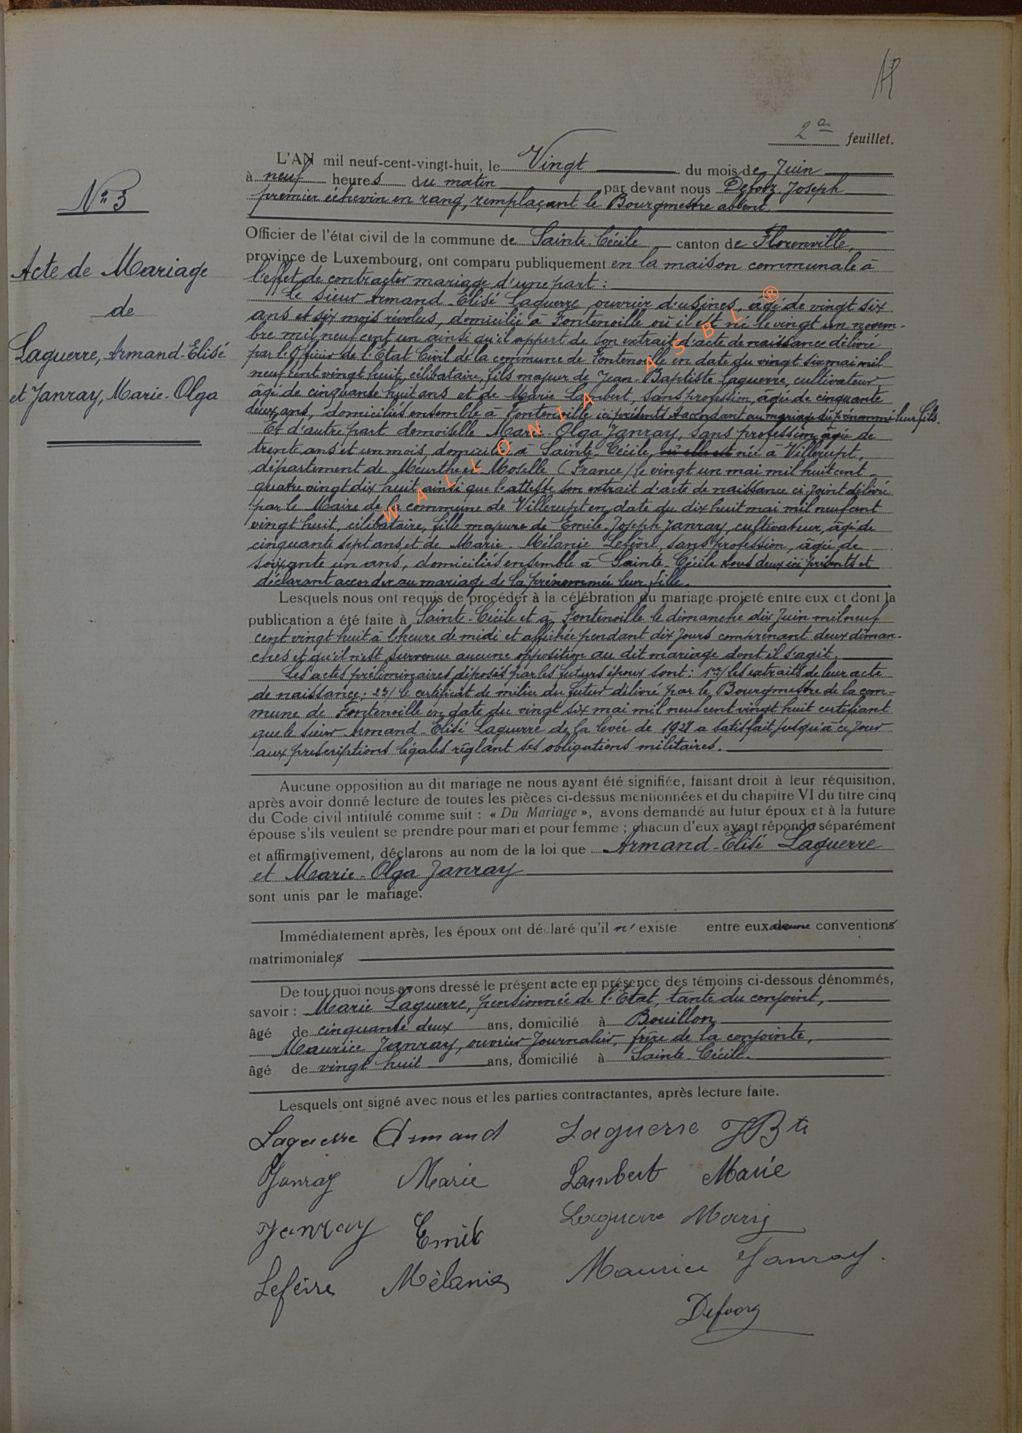 2e feuillet.
L'AN mil neuf-cent-vingt-huit, le Vingt du mois de Juin
à neuf heures du matin par devant nous Defoz, Joseph
premier échevin en rang, remplaçant le Bourgmestre absent
Officier de l'état civil de la commune de Sainte-Cécile canton de Florenville,
province de Luxembourg, ont comparu publiquement en la maison communale à
l'effet de contracter mariage d'une part :
le sieur Armand-Elisé Laguerre, ouvrier d'usines, âgé de vingt six
ans et six mois révolus, domicilié à Fontenoille où il est né le vingt un novem-
bre mil neuf cent un ainsi qu'il appert de son extrait d'acte de naissance délivré
par l'Officier de l'Etat Civil de la commune de Fontenoille en date du vingt six mai mil
neuf cent vingt huit, célibataire, fils majeur de Jean-Baptiste Laguerre, cultivateur
âgé de cinquante huit ans et de Marie Lambert, sans profession, âgée de cinquante
deux ans, domiciliés ensemble à Fontenoille ici présents et accordant au mariage du prénommé leur fils.
Et d'autre part demoiselle Marie-Olga Janray, sans profession, âgée de
trente ans et un mois, domiciliée à Sainte-Cécile, où elle est née à Villerupt,
département de Meurthe et Moselle (France) le vingt un mai mil huit cent
quatre vingt dix huit ainsi que l'atteste son extrait d'acte de naissance ci-joint délivré
par le Maire de la commune de Villerupt en date du dix huit mai mil neuf cent
vingt huit, célibataire, fille majeure de Emile-Joseph Janray, cultivateur, âgé de
cinquante sept ans, et de Marie-Mélanie Lefèvre, sans profession, âgée de
soixante un ans, domiciliés ensemble à Sainte-Cécile tous deux ici présents et
déclarant accorder au mariage de la prénommée leur fille.
Lesquels nous ont requis de procéder à la célébration du mariage projeté entre eux et dont la
publication a été faite à Sainte-Cécile et à Fontenoille le dimanche dix Juin mil neuf
cent vingt huit à l'heure de midi et affichée pendant dix jours comprenant deux diman-
ches et qu'il n'est survenue aucune opposition au dit mariage dont il s'agit.
Les actes préliminaires déposés par les futurs époux sont : 1°/ les extraits de leur acte
de naissance ; 2°/ le certificat de milice du futur délivré par le Bourgmestre de la com-
mune de Fontenoille en date du vingt six mai mil neuf cent vingt huit certifiant
que le sieur Armand-Elisé Laguerre de la levée de 1921 a satisfait jusqu'à ce jour
aux prescriptions légales réglant ses obligations militaires.
Aucune opposition au dit mariage ne nous ayant été signifiée, faisant droit à leur réquisition,
après avoir donné lecture de toutes les pièces ci-dessus mentionnées et du chapitre VI du titre cinq
du Code civil intitulé comme suit : « Du Mariage », avons demandé au futur époux et à la future
épouse s'ils veulent se prendre pour mari et pour femme ; chacun d'eux ayant répondu séparément
et affirmativement, déclarons au nom de la loi que Armand-Elisé Laguerre
et Marie-Olga Janray
sont unis par le mariage.
Immédiatement après, les époux ont déclaré qu'il n'existe entre eux aucune conventions
matrimoniales
De tout quoi nous avons dressé le présent acte en présence des témoins ci-dessous dénommés,
savoir : Marie Laguerre, pensionnée de l'Etat, tante du conjoint,
âgé de cinquante deux ans, domicilié à Bouillon
Maurice Janray, ouvrier Journalier, frère de la conjointe,
âgé de vingt huit ans, domicilié à Sainte-Cécile.
Lesquels ont signé avec nous et les parties contractantes, après lecture faite.
Laguerre Armand Laguerre JBte
Janray Marie Lambert Marie
Janray Emile Laguerre Marie
Lefèvre Mélanie Maurice Janray.
N° 3
Acte de Mariage
de
Laguerre, Armand-Elisé
et Janray, Marie-Olga
WALLONIA ASBL ®